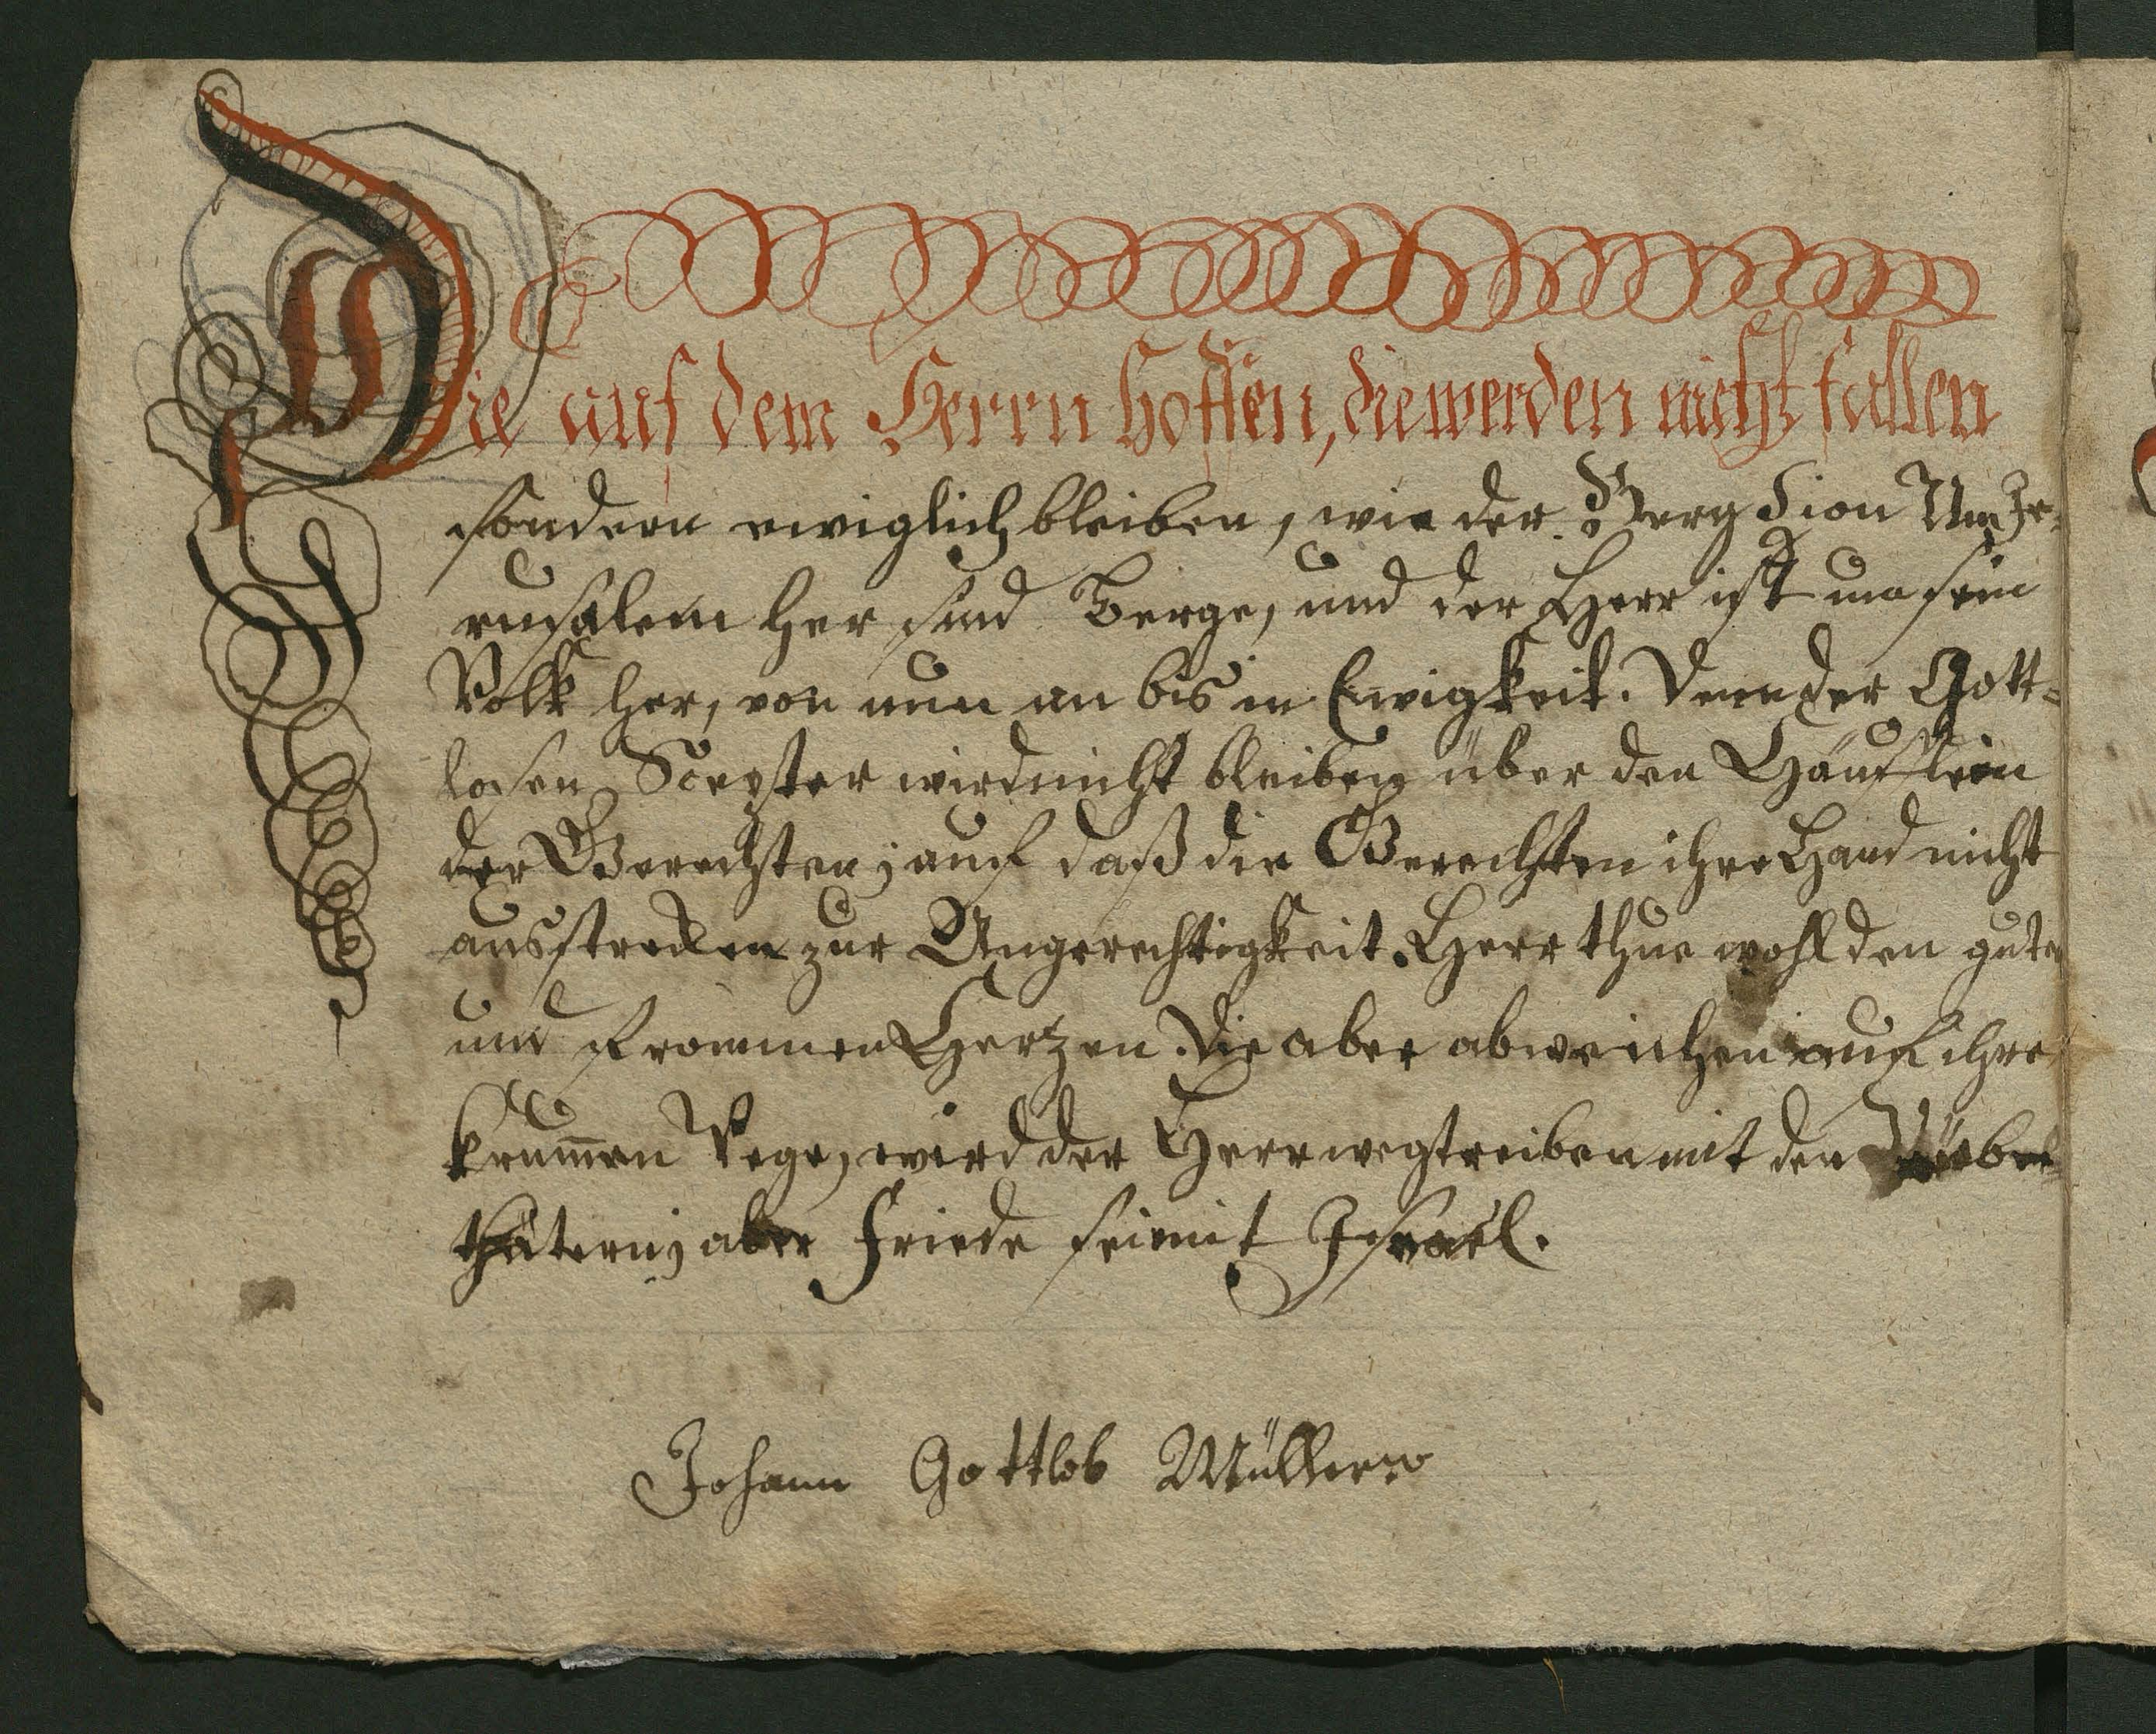 Die auf dem Herrn hoffen, die werden nicht fallen
sondern ewiglich bleiben, wie der Berg Sion Um Je-
rusalem her sind Berge, und der Herr ist um sein
Volk her, von nun an bis in Ewigkeit. Denn der Gott-
losen Scepter wird nicht bleiben über den Häuflein
der Gerechten; auf daß die Gerechten ihre Hand nicht
ausstrecken zur Ungerechtigkeit. Herr thue wohl den guten
und frommen Hertzen. Die aber abweichen auf ihre
krum̅en Wege, wird der Herr wegtreiben mit den
thätern; aber Friede sei mit Israel.
Johann Gottlob Müller